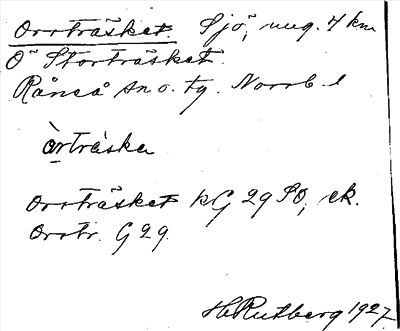 Orrträsket. Sjö, ung. 4 km
Ö Storträsket.
Råneå sn o. tg. Norrb. l
àrtràskα
Orrträsket kG 29 SO, ek.
Orrtr. G 29.
H Rutberg 1927.